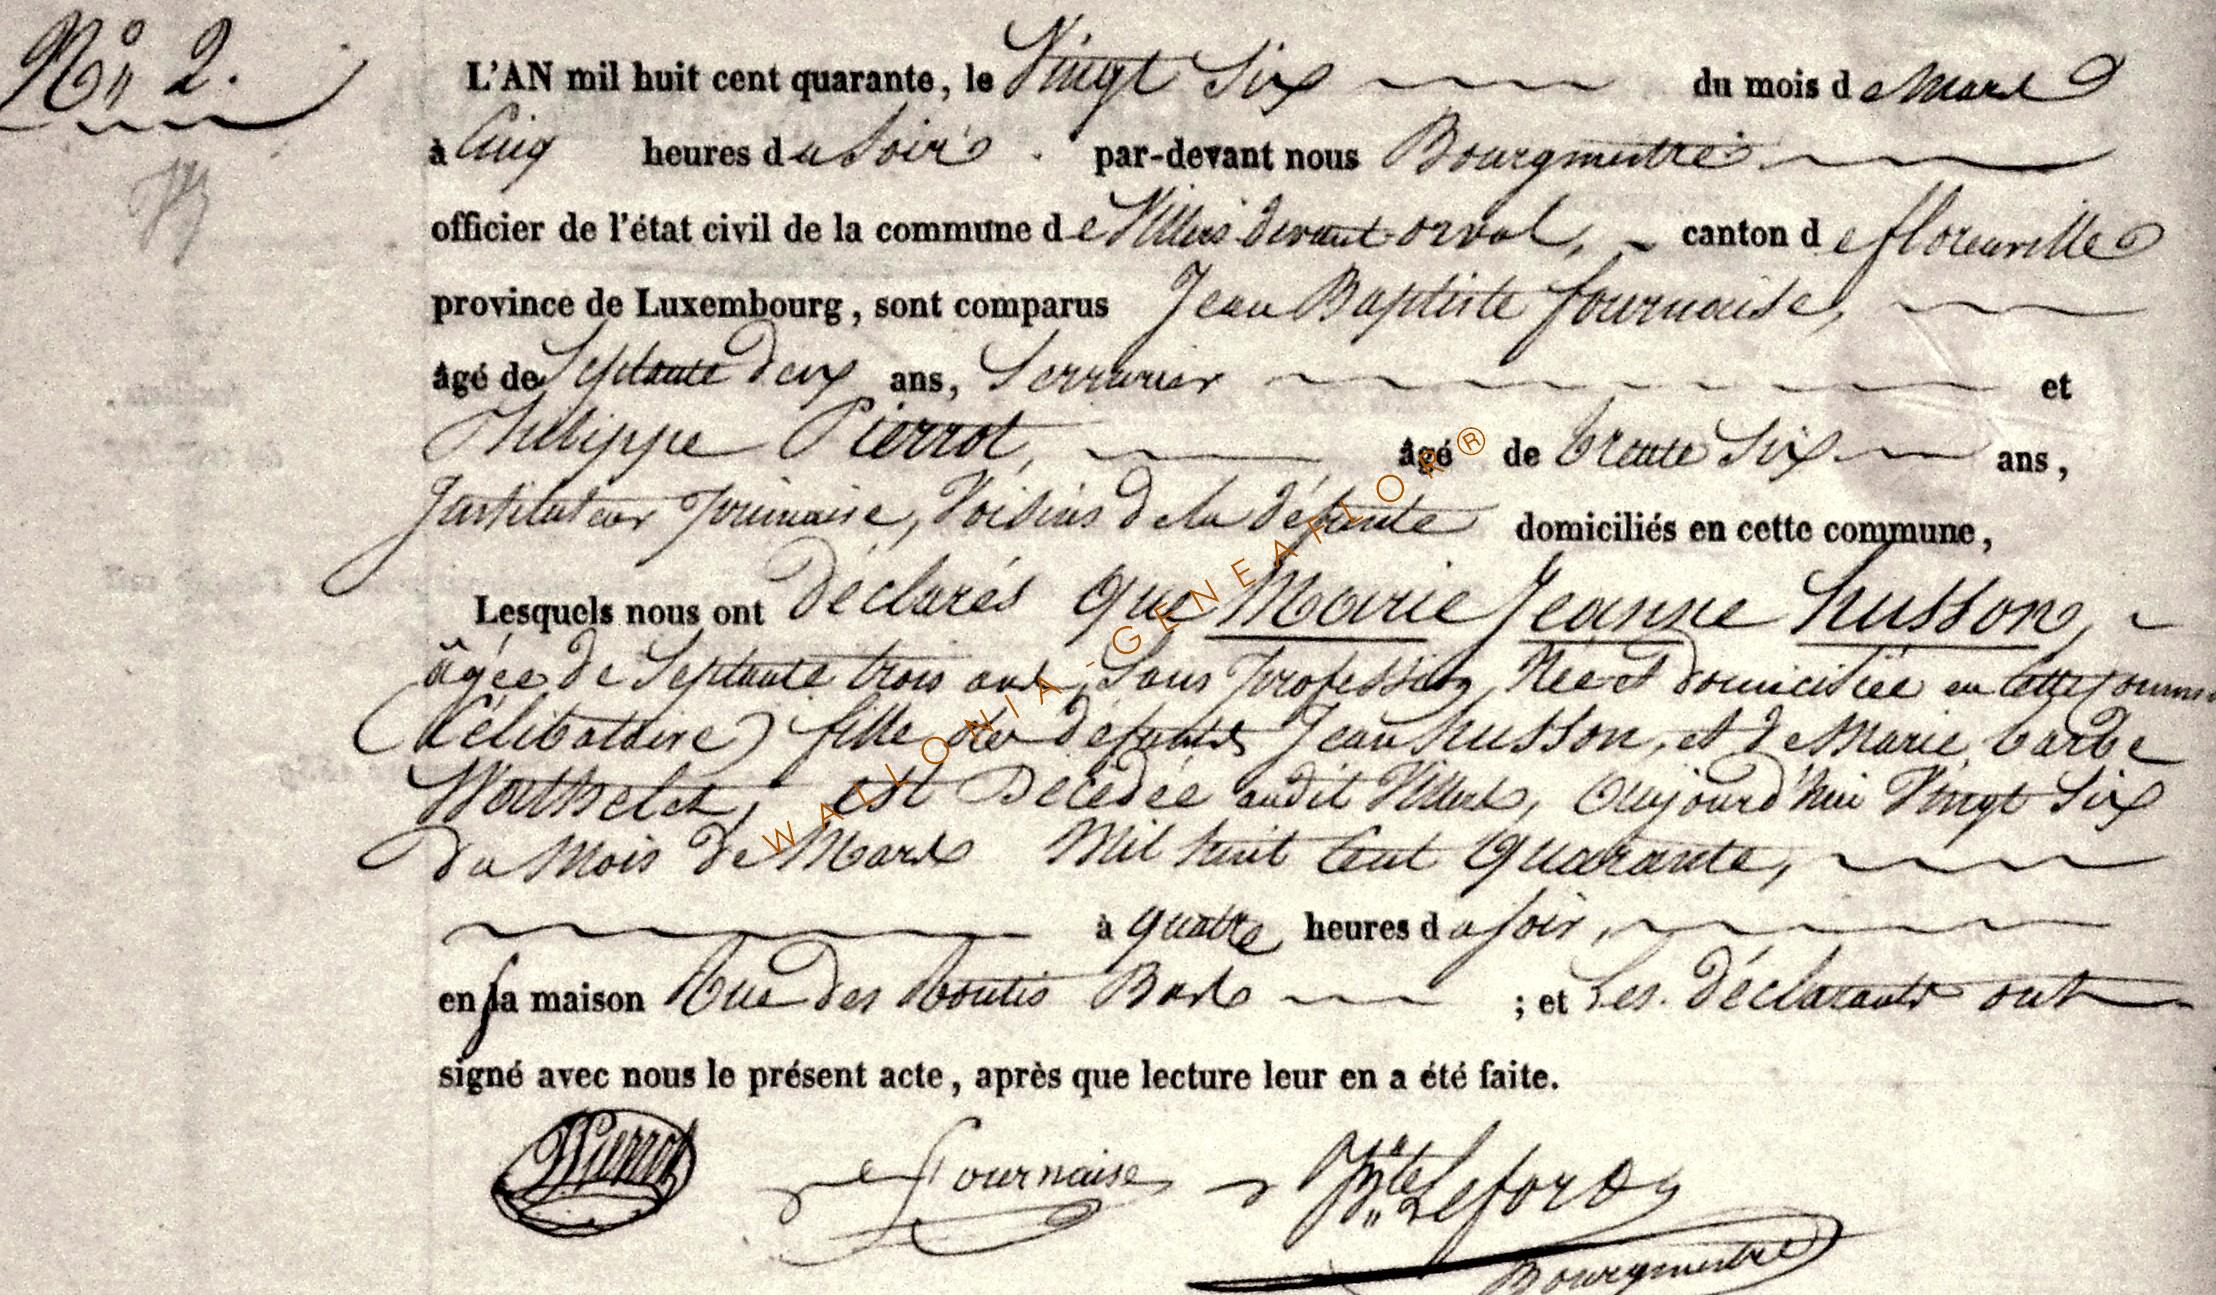 Nº 2.
L'AN mil huit cent quarante, le Vingt Six du mois de Mars
à Cinq heures du Soir. par-devant nous Bourgmestre
officier de l'état civil de la commune de Villers devant orval, canton de florenville
province de Luxembourg, sont comparus Jean Baptiste fournaise,
âgé de Septante deux ans, Serrurier et
Philippe Pierrot, âgé de trente Six ans,
Instituteur primaire, Voisins de la défunte domiciliés en cette commune,
Lesquels nous ont déclarés que Marie Jeanne husson,
âgée de Septante trois ans, Sans profession, Née et domiciliée en cette
(Célibataire) fille de défunts Jean husson, et de Marie barbe
est Décédée audit Villers, aujourd'hui Vingt Six
du Mois de Mars Mil huit Cent Quarante,
à quatre heures du soir,
en sa maison Rue des Bas ; et les déclarants ont
signé avec nous le présent acte, après que lecture leur en a été faite.
Pierrot fournaise Lefort
Bourgmestre
WALLONIA-GENEAFLOR®